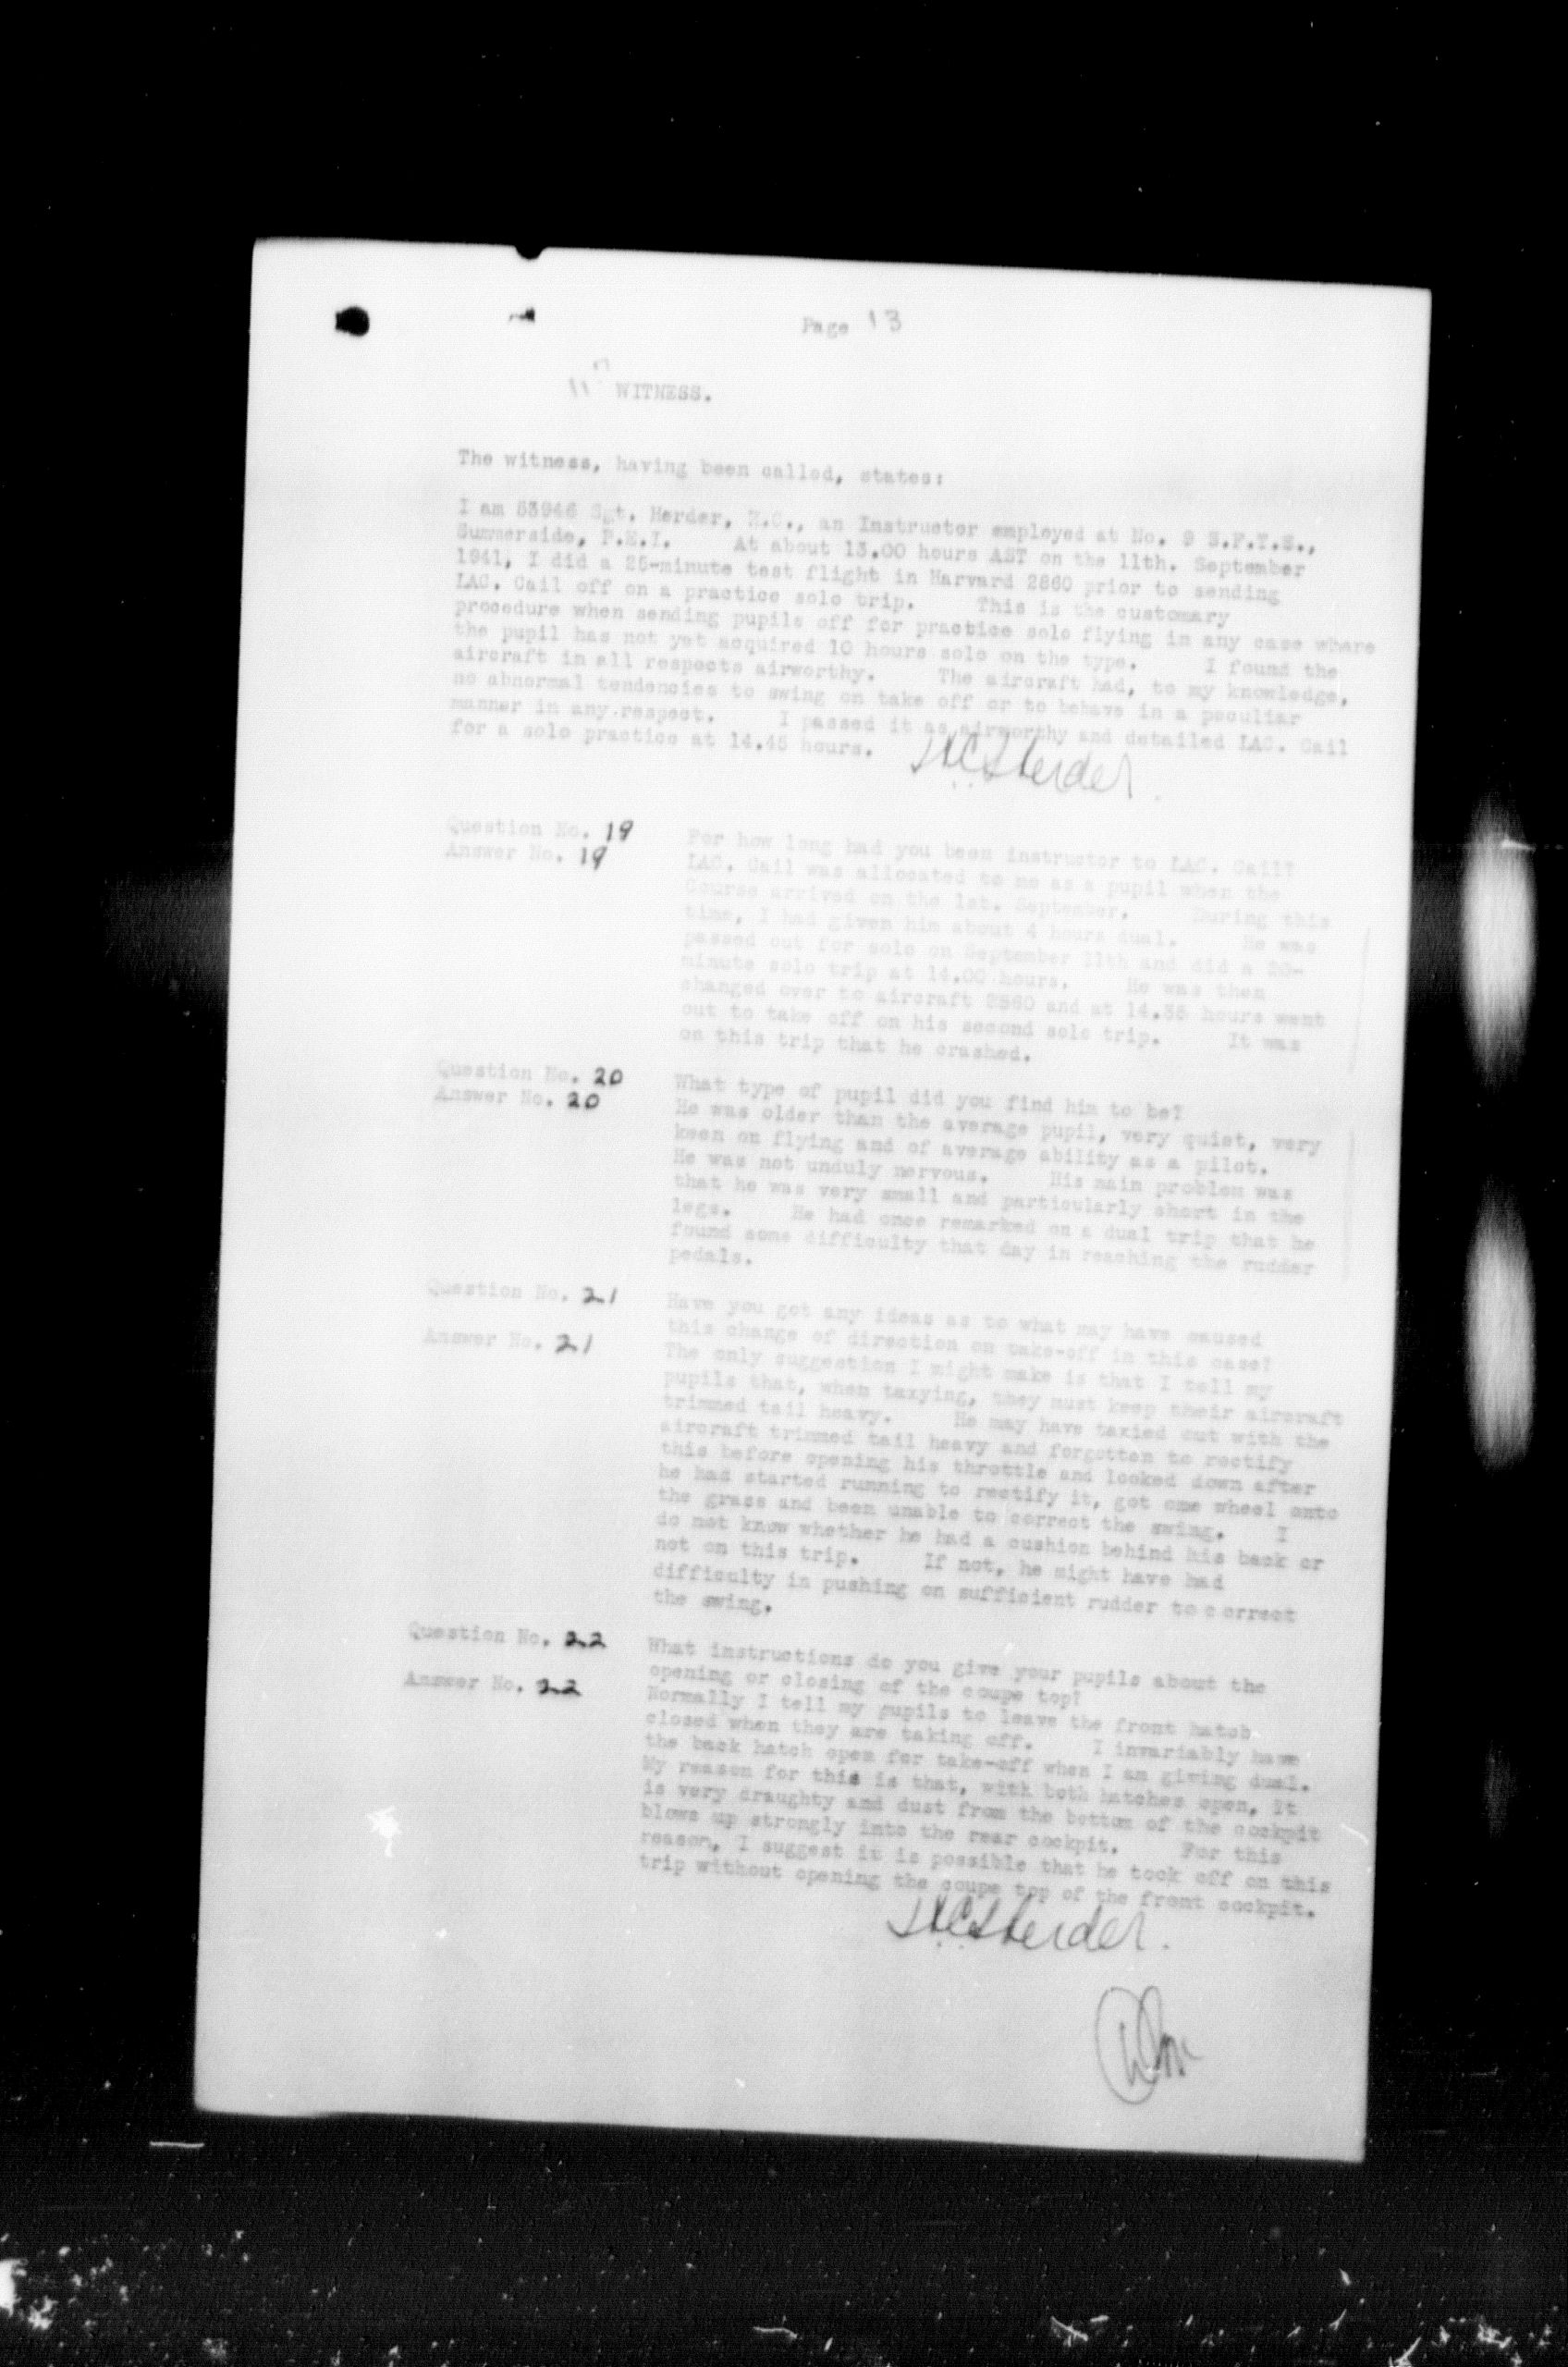 Page 13
11th WITNESS.
The witness, having been called, states:
I am 53946 Sgt. Herder, H.C., an Instructor employed at No. 9 S.F.T.S.,
Summerside, P.E.I. At about 13.00 hours AST on the 11th. September
1941, I did a 25-minute test flight in Harvard 2860 prior to sending
LAC. Cail off on a practice solo trip. This is the customary
procedure when sending pupils off for practice solo flying in any case where
the pupil has not yet acquired 10 hours solo on the type. I found the
aircraft in all respects airworthy. The aircraft had, to my knowledge,
no abnormal tendencies to swing on take off or to behave in a peculiar
manner in any respect. I passed it as airworthy and detailed LAC. Cail
for a solo practice at 14.45 hours.
Herder
Question No. 19 For how long had you been instructor to LAC. Cail?
Answer No. 19 LAC. Cail was allocated to me as a pupil when the
Course arrived on the 1st. September. During this
time, I had given him about 4 hours dual. He was
passed out for solo on September 11th and did a 20-
minute solo trip at 14.00 hours. He was then
changed over to aircraft 2860 and at 14.35 hours went
out to take off on his second solo trip. It was
on this trip that he crashed.
Question No. 20 What type of pupil did you find him to be?
Answer No. 20 He was older than the average pupil, very quiet, very
keen on flying and of average ability as a pilot.
He was not unduly nervous. His main problem was
that he was very small and particularly short in the
legs. He had once remarked on a dual trip that he
found some difficulty that day in reaching the rudder
pedals.
Question No. 21 Have you got any ideas as to what may have caused
this change of direction on take-off in this case?
Answer No. 21 The only suggestion I might make is that I tell my
pupils that, when taxying, they must keep their aircraft
trimmed tail heavy. He may have taxied out with the
aircraft trimmed tail heavy and forgotten to rectify
this before opening his throttle and looked down after
he had started running to rectify it, got one wheel onto
the grass and been unable to correct the swing. I
do not know whether he had a cushion behind his back or
not on this trip. If not, he might have had
difficulty in pushing on sufficient rudder to correct
the swing.
Question No. 22 What instructions do you give your pupils about the
opening or closing of the coupe top?
Answer No. 22 Normally I tell my pupils to leave the front hatch
closed when they are taking off. I invariably have
the back hatch open for take-off when I am giving dual.
My reason for this is that, with both hatches open, it
is very draughty and dust from the bottom of the cockpit
blows up strongly into the rear cockpit. For this
reason, I suggest it is possible that he took off on this
trip without opening the coupe top of the front cockpit.
Herder.